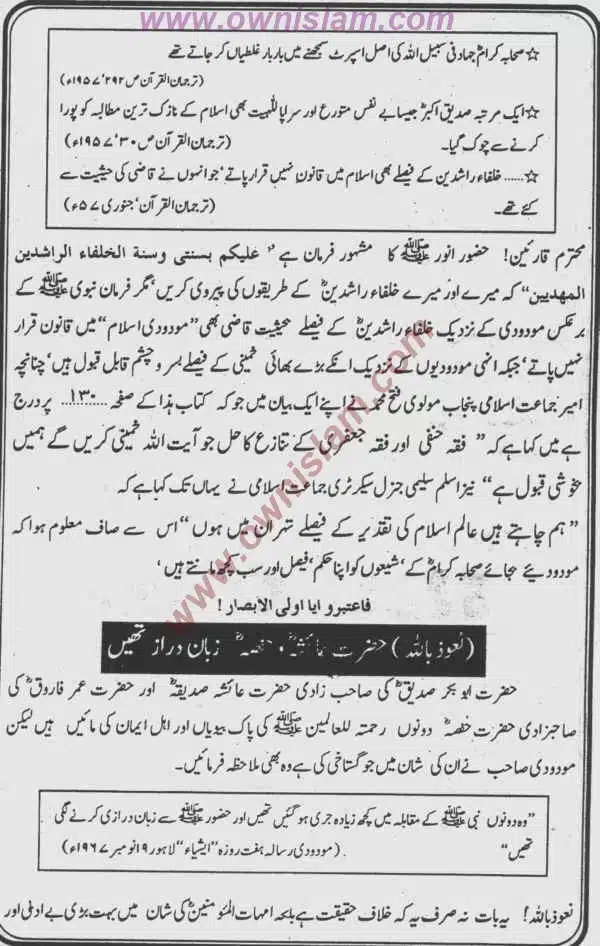 www.ownislam.com
☆ صحابہ کرامؓ جہاد فی سبیل اللہ کی اصل اسپرٹ سمجھنے میں بار بار غلطیاں کر جاتے تھے
(ترجمان القرآن ص ۲۹۲‘ ۱۹۵۷ء)
☆ ایک مرتبہ صدیق اکبرؓ جیسا بے نفس متورع اور سراپا للہیت بھی اسلام کے نازک ترین مطالبہ کو پورا
کرنے سے چوک گیا۔ (ترجمان القرآن ص ۳۰‘ ۱۹۵۷ء)
☆ ...... خلفاء راشدین کے فیصلے بھی اسلام میں قانون نہیں قرار پاتے‘ جو انہوں نے قاضی کی حیثیت سے
کئے تھے۔ (ترجمان القرآن‘ جنوری ۵۷ء)
محترم قارئین! حضور انور ﷺ کا مشہور فرمان ہے ”علیکم بسنتی وسنة الخلفاء الراشدین
المهدیین“ کہ میرے اور میرے خلفاء راشدینؓ کے طریقوں کی پیروی کریں‘ مگر فرمان نبوی ﷺ کے
برعکس مودودی کے نزدیک خلفاء راشدینؓ کے فیصلے بحیثیت قاضی بھی ”مودودی اسلام“ میں قانون قرار
نہیں پاتے‘ جبکہ انہی مودودیوں کے نزدیک انکے بڑے بھائی خمینی کے فیصلے بسر و چشم قابل قبول ہیں‘ چنانچہ
امیر جماعت اسلامی پنجاب مولوی فتح محمد نے اپنے ایک بیان میں جو کہ کتاب ہذا کے صفحہ ...۱۳۰... پر درج
ہے میں کہا ہے کہ ” فقہ حنفی اور فقہ جعفری کے تنازع کا حل جو آیت اللہ خمینی کریں گے ہمیں
خوشی قبول ہے“ نیز اسلم سلیمی جنرل سیکرٹری جماعت اسلامی نے یہاں تک کہا ہے کہ
” ہم چاہتے ہیں عالم اسلام کی تقدیر کے فیصلے تہران میں ہوں“ اس سے صاف معلوم ہوا کہ
مودودیئے بجائے صحابہ کرامؓ کے‘ شیعوں کو اپنا حکم‘ فیصل اور سب کچھ مانتے ہیں‘
فاعتبرو ایا اولی الابصار!
(نعوذ باللہ) حضرت عائشہؓ، حفصہؓ زبان دراز تھیں
حضرت ابو بکر صدیقؓ کی صاحب زادی حضرت عائشہ صدیقہؓ اور حضرت عمر فاروقؓ کی
صاحبزادی حضرت حفصہؓ دونوں رحمتہ للعالمین ﷺ کی پاک بیویاں اور اہل ایمان کی مائیں ہیں لیکن
مودودی صاحب نے ان کی شان میں جو گستاخی کی ہے وہ بھی ملاحظہ فرمائیں۔
”وہ دونوں نبی ﷺ کے مقابلہ میں کچھ زیادہ جری ہو گئیں تھیں اور حضور ﷺ سے زبان درازی کرنے لگی
تھیں“ (مودودی رسالہ ہفت روزہ ”ایشیاء“ لاہور ۱۹ نومبر ۱۹۶۷ء)
نعوذ باللہ! یہ بات نہ صرف یہ کہ خلاف حقیقت ہے بلکہ امہات المؤمنینؓ کی شان میں بہت بڑی بے ادبی اور
www.ownislam.com